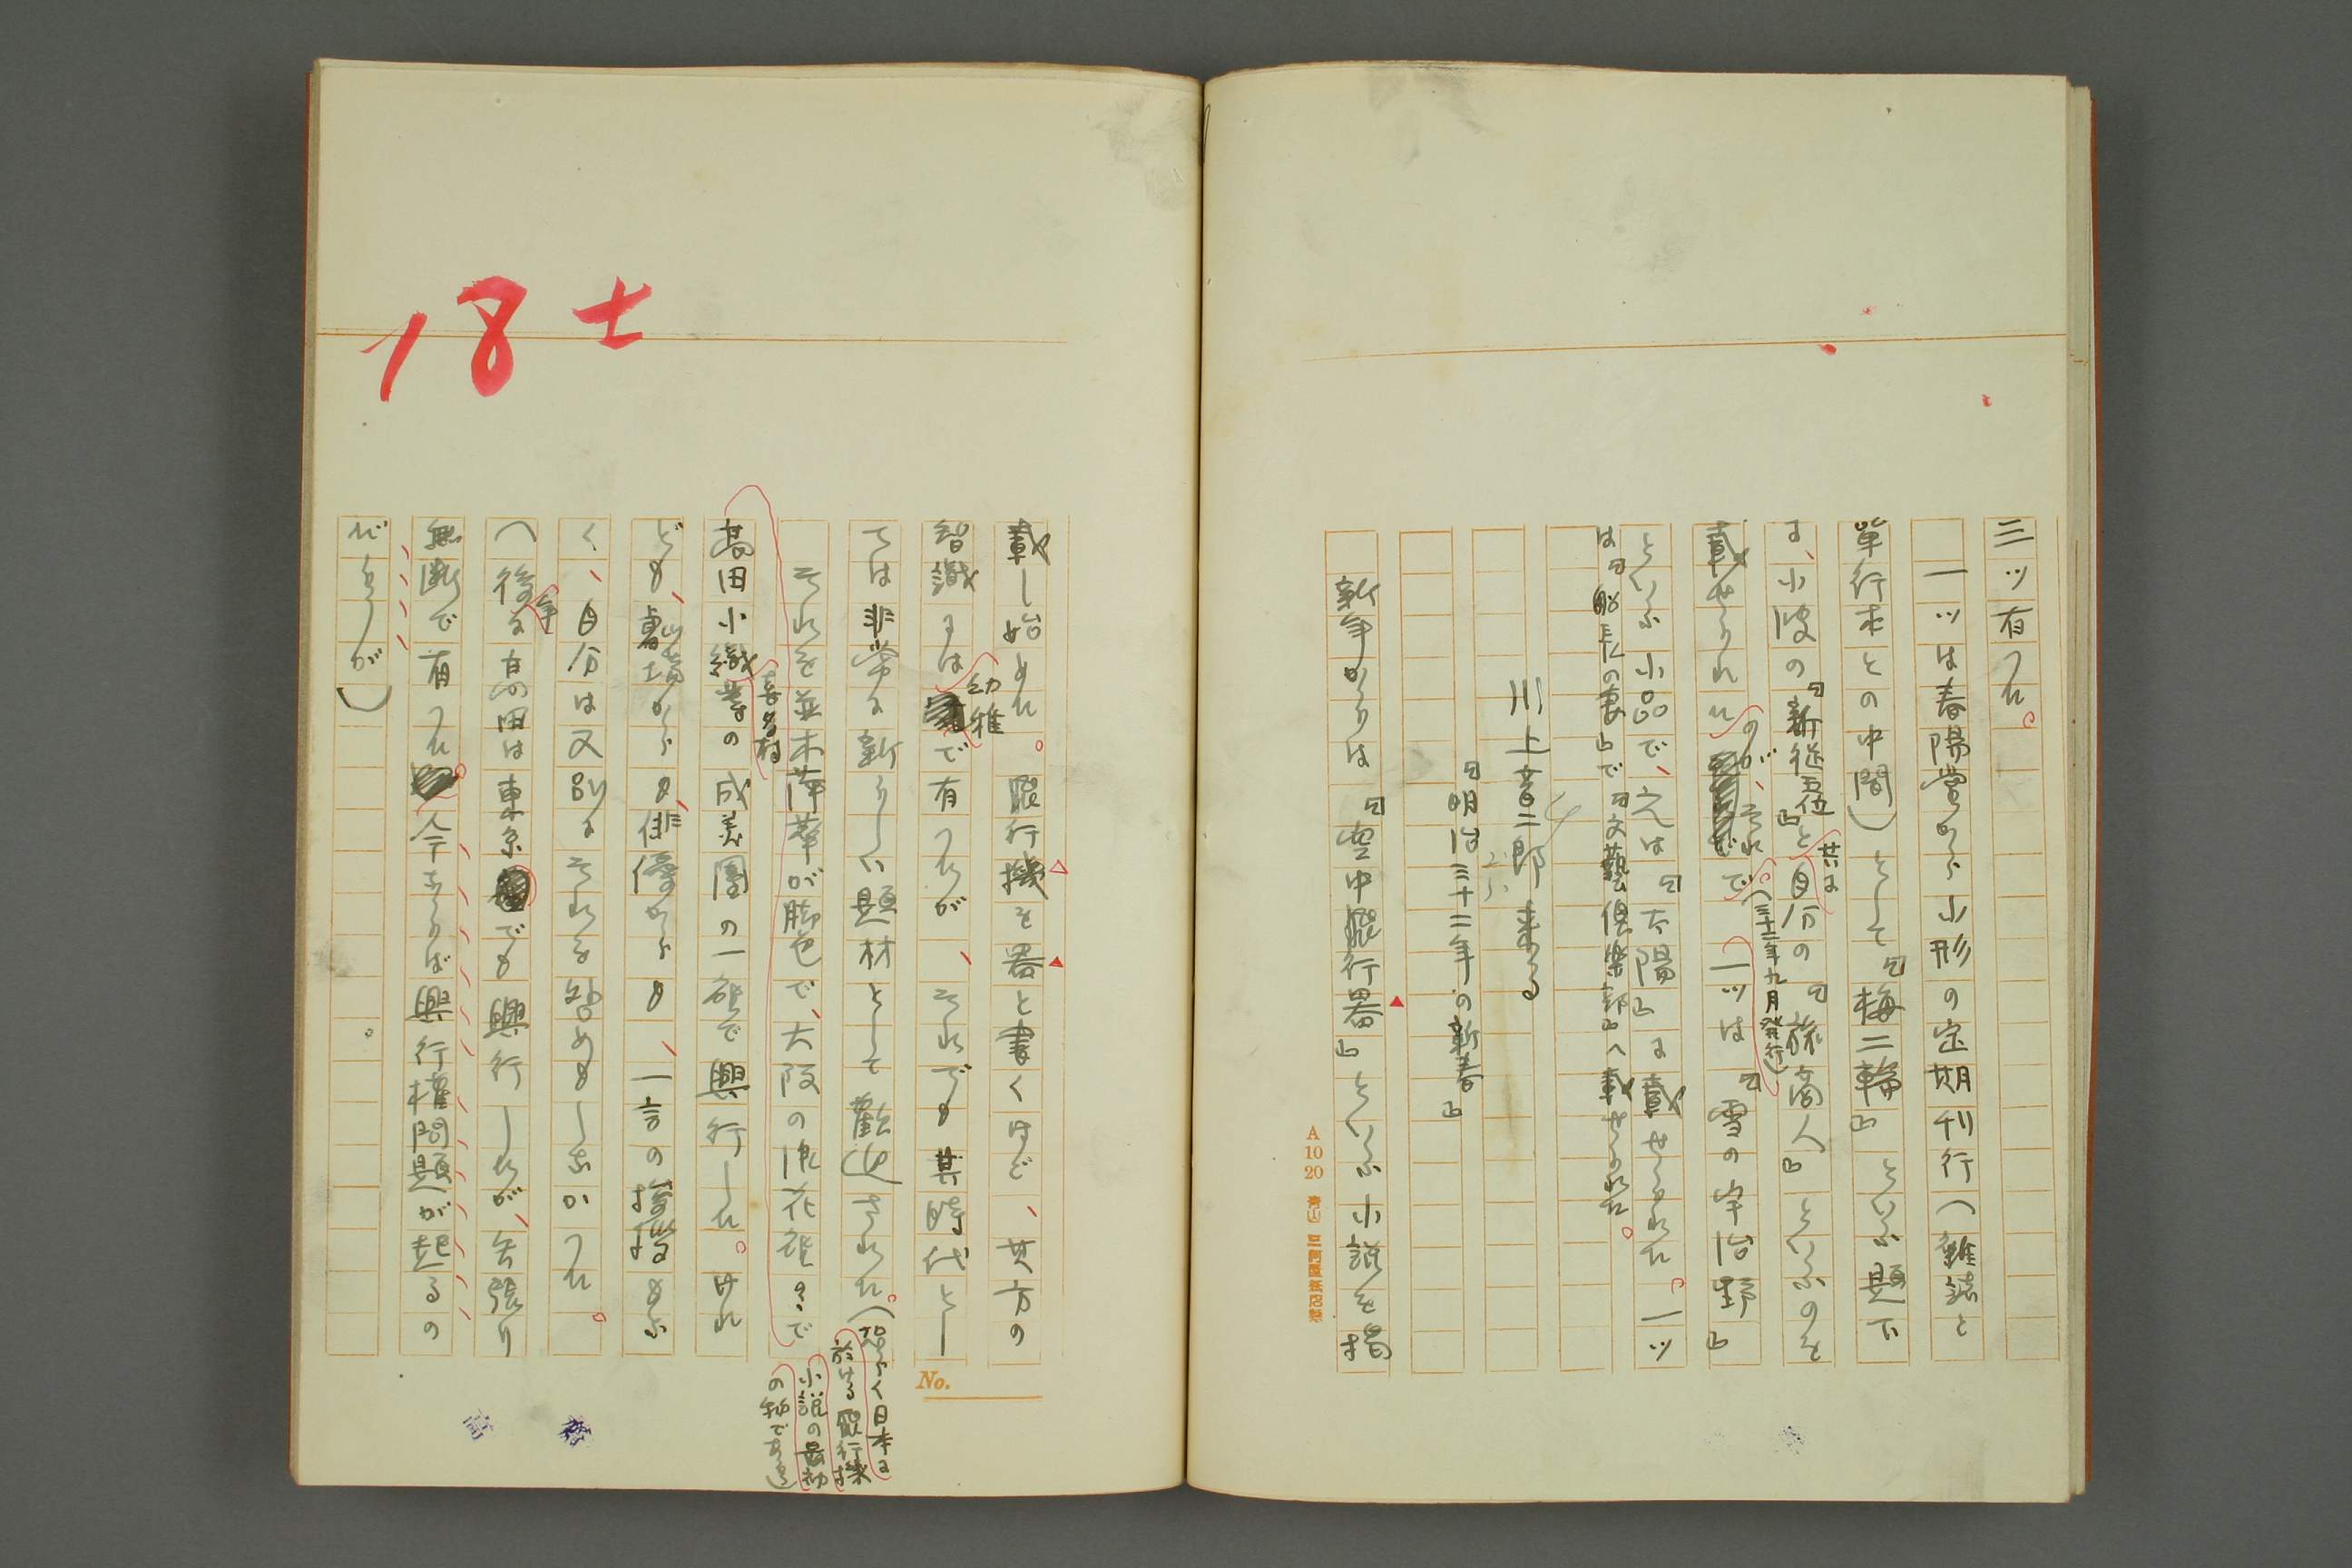 三ツ有つた。
一ツは春陽堂から小形の定期刊行(雜誌と
單行本との中間)として『梅二輪』といふ題下
に、小波の『新從五位』と共に自分の『旅商人』といふのを
載せられたのが、それで(三十二年九月発行)一ツは『雪の宇治野』
といふ小品で、之は『太陽』に載せられた。一ツ
は『船長の妻』で『文藝倶樂部』へ載せられた。
川上音二郎来る
『明治三十二年の新春』
新年からは『空中飛行器』といふ小説を掲
A 10 20
載し始めた。飛行機を器と書くほど、其方の
智識には幼稚で有つたが、それでも其時代とし
ては非常に新らしい題材として歡迎された。(恐らく日本に
於ける飛行機
小説の最初
の物であらう)
それを並木萍葉が脚色で、大阪の浪花座で
高田小織等の喜多村成美團の一座で興行した。けれ
ども、劇場からも、俳優からも、一言の挨拶もな
く、自分は又別にそれを咎めもしなかつた。
(後年に高田は東京でも興行したが、矢張り
無断で有つた。今ならば興行權問題が起るの
だらうが)
No.
18
士